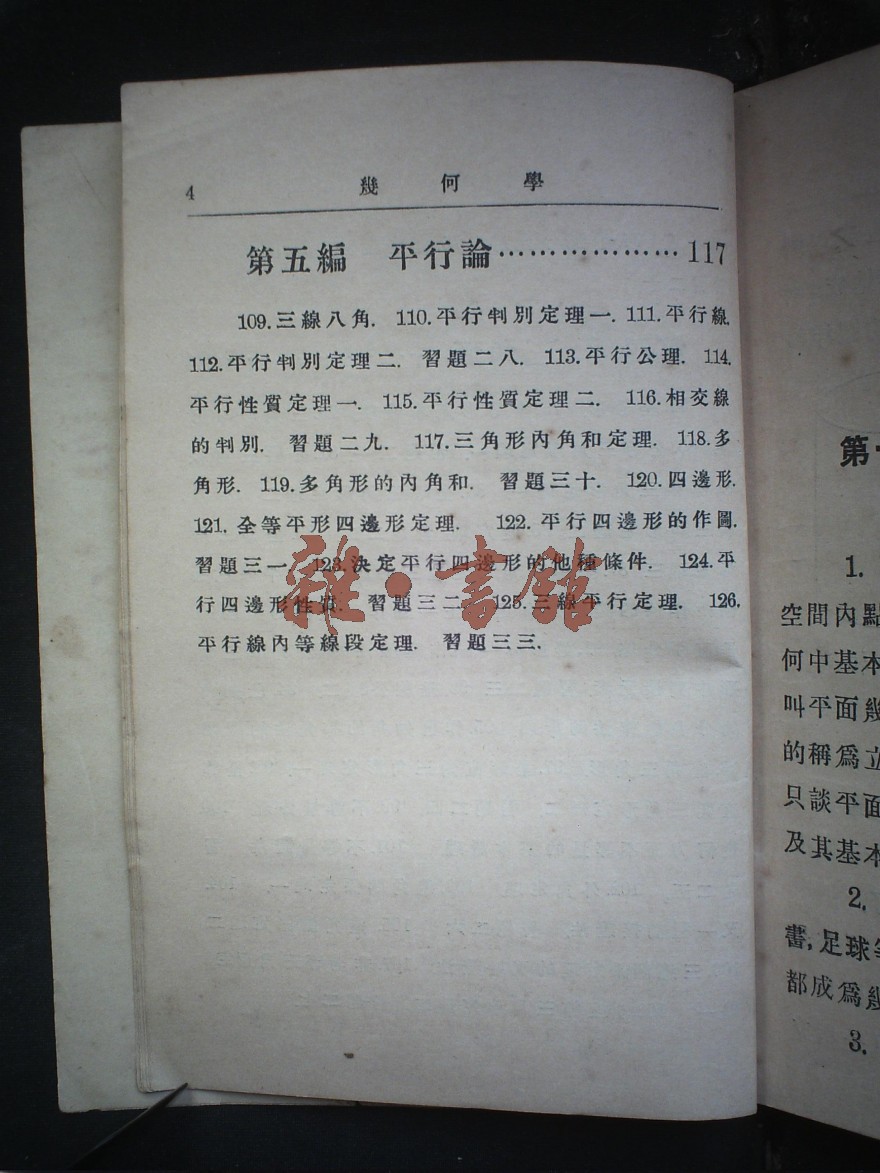 4 幾何學
第五編 平行論⋯⋯⋯⋯⋯⋯117
109.三線八角. 110.平行判別定理一. 111.平行線.
112.平行判別定理二. 習題二八. 113.平行公理. 114.
平行性質定理一. 115.平行性質定理二. 116.相交線
的判別. 習題二九. 117.三角形內角和定理. 118.多
角形. 119.多角形的內角和. 習題三十. 120.四邊形.
121.全等平形四邊形定理. 122.平行四邊形的作圖.
習題三一. 123.決定平行四邊形的他種條件. 124.平
行四邊形性質. 習題三二. 125.三線平行定理. 126.
平行線內等線段定理. 習題三三.
雜·書館
第
1.
空間內點
何中基本
叫平面幾
的稱爲立
只談平面
及其基本
2.
書,足球等
都成爲幾
3.